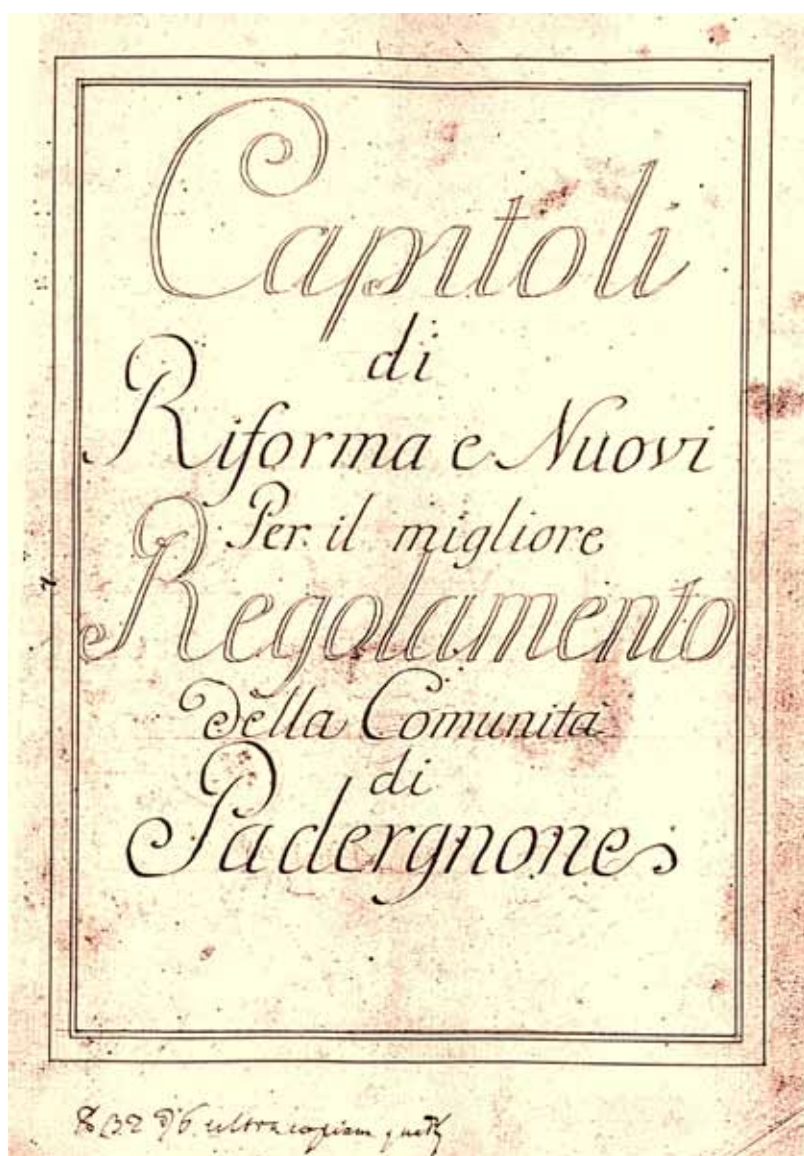 Capitoli
di
Riforma e Nuovi
Per il migliore
Regolamento
della Comunità
di
Padergnone
ultra copiam